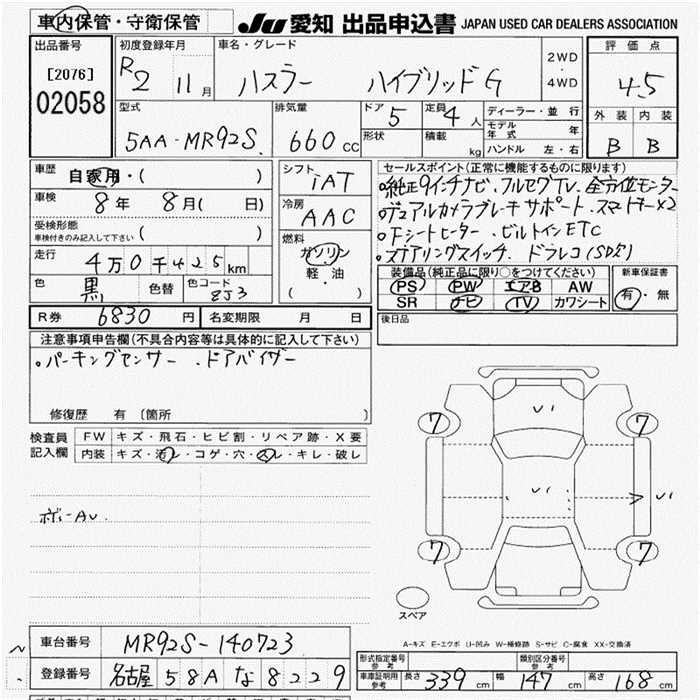 車内保管・守衛保管 JU 愛知 出品申込書 JAPAN USED CAR DEALERS ASSOCIATION
出品番号 初度登録年月 車名・グレード 評価点
[2076] R2 11月 ハスラー ハイブリッドG 2WD・4WD 4.5
02058
型式 排気量 ドア 5 定員 4人 ディーラー・並行 外装 内装
5AA-MR92S 660cc 形状 積載 kg モデル年式 年 B B
ハンドル 左・右
車歴 自家用・( ) シフト iAT セールスポイント(正常に機能するものに限ります)
車検 8年 8月( 日) 冷房 AAC ・純正9インチナビ・フルセグTV・全方位モニター
・デュアルカメラブレーキサポート・スマートキー×2
受検形態 車検付きのみ記入して下さい ( ) 燃料 ・Fシートヒーター・ビルトインETC
走行 4万0千425km ガソリン ・ステアリングスイッチ・ドラレコ(SD無)
軽・油 装備品(純正品に限り○をつけてください) 新車保証書
色 黒 色替 色コード ZJ3 ( ) PS PW エアB AW 有・無
SR ナビ TV カワシート
R券 6830円 名変期限 月 日 後日品
注意事項申告欄(不具合内容等は具体的に記入して下さい)
・パーキングセンサー・ドアバイザー
修復歴 有 〔箇所 〕
検査員記入欄 FW キズ・飛石・ヒビ割・リペア跡・X要
内装 キズ・汚レ・コゲ・穴・スレ・キレ・破レ
7 7
ボデーAU.
7 7
スペア
A-キズ E-エクボ U-凹み W-補修跡 S-サビ C-腐食 XX-交換済
車台番号 MR92S-140723
登録番号 名古屋 58A な 8229
形式指定番号 参考 類別区分番号 参考
車庫証明用 参考 長さ 339cm 幅 147cm 高さ 168cm